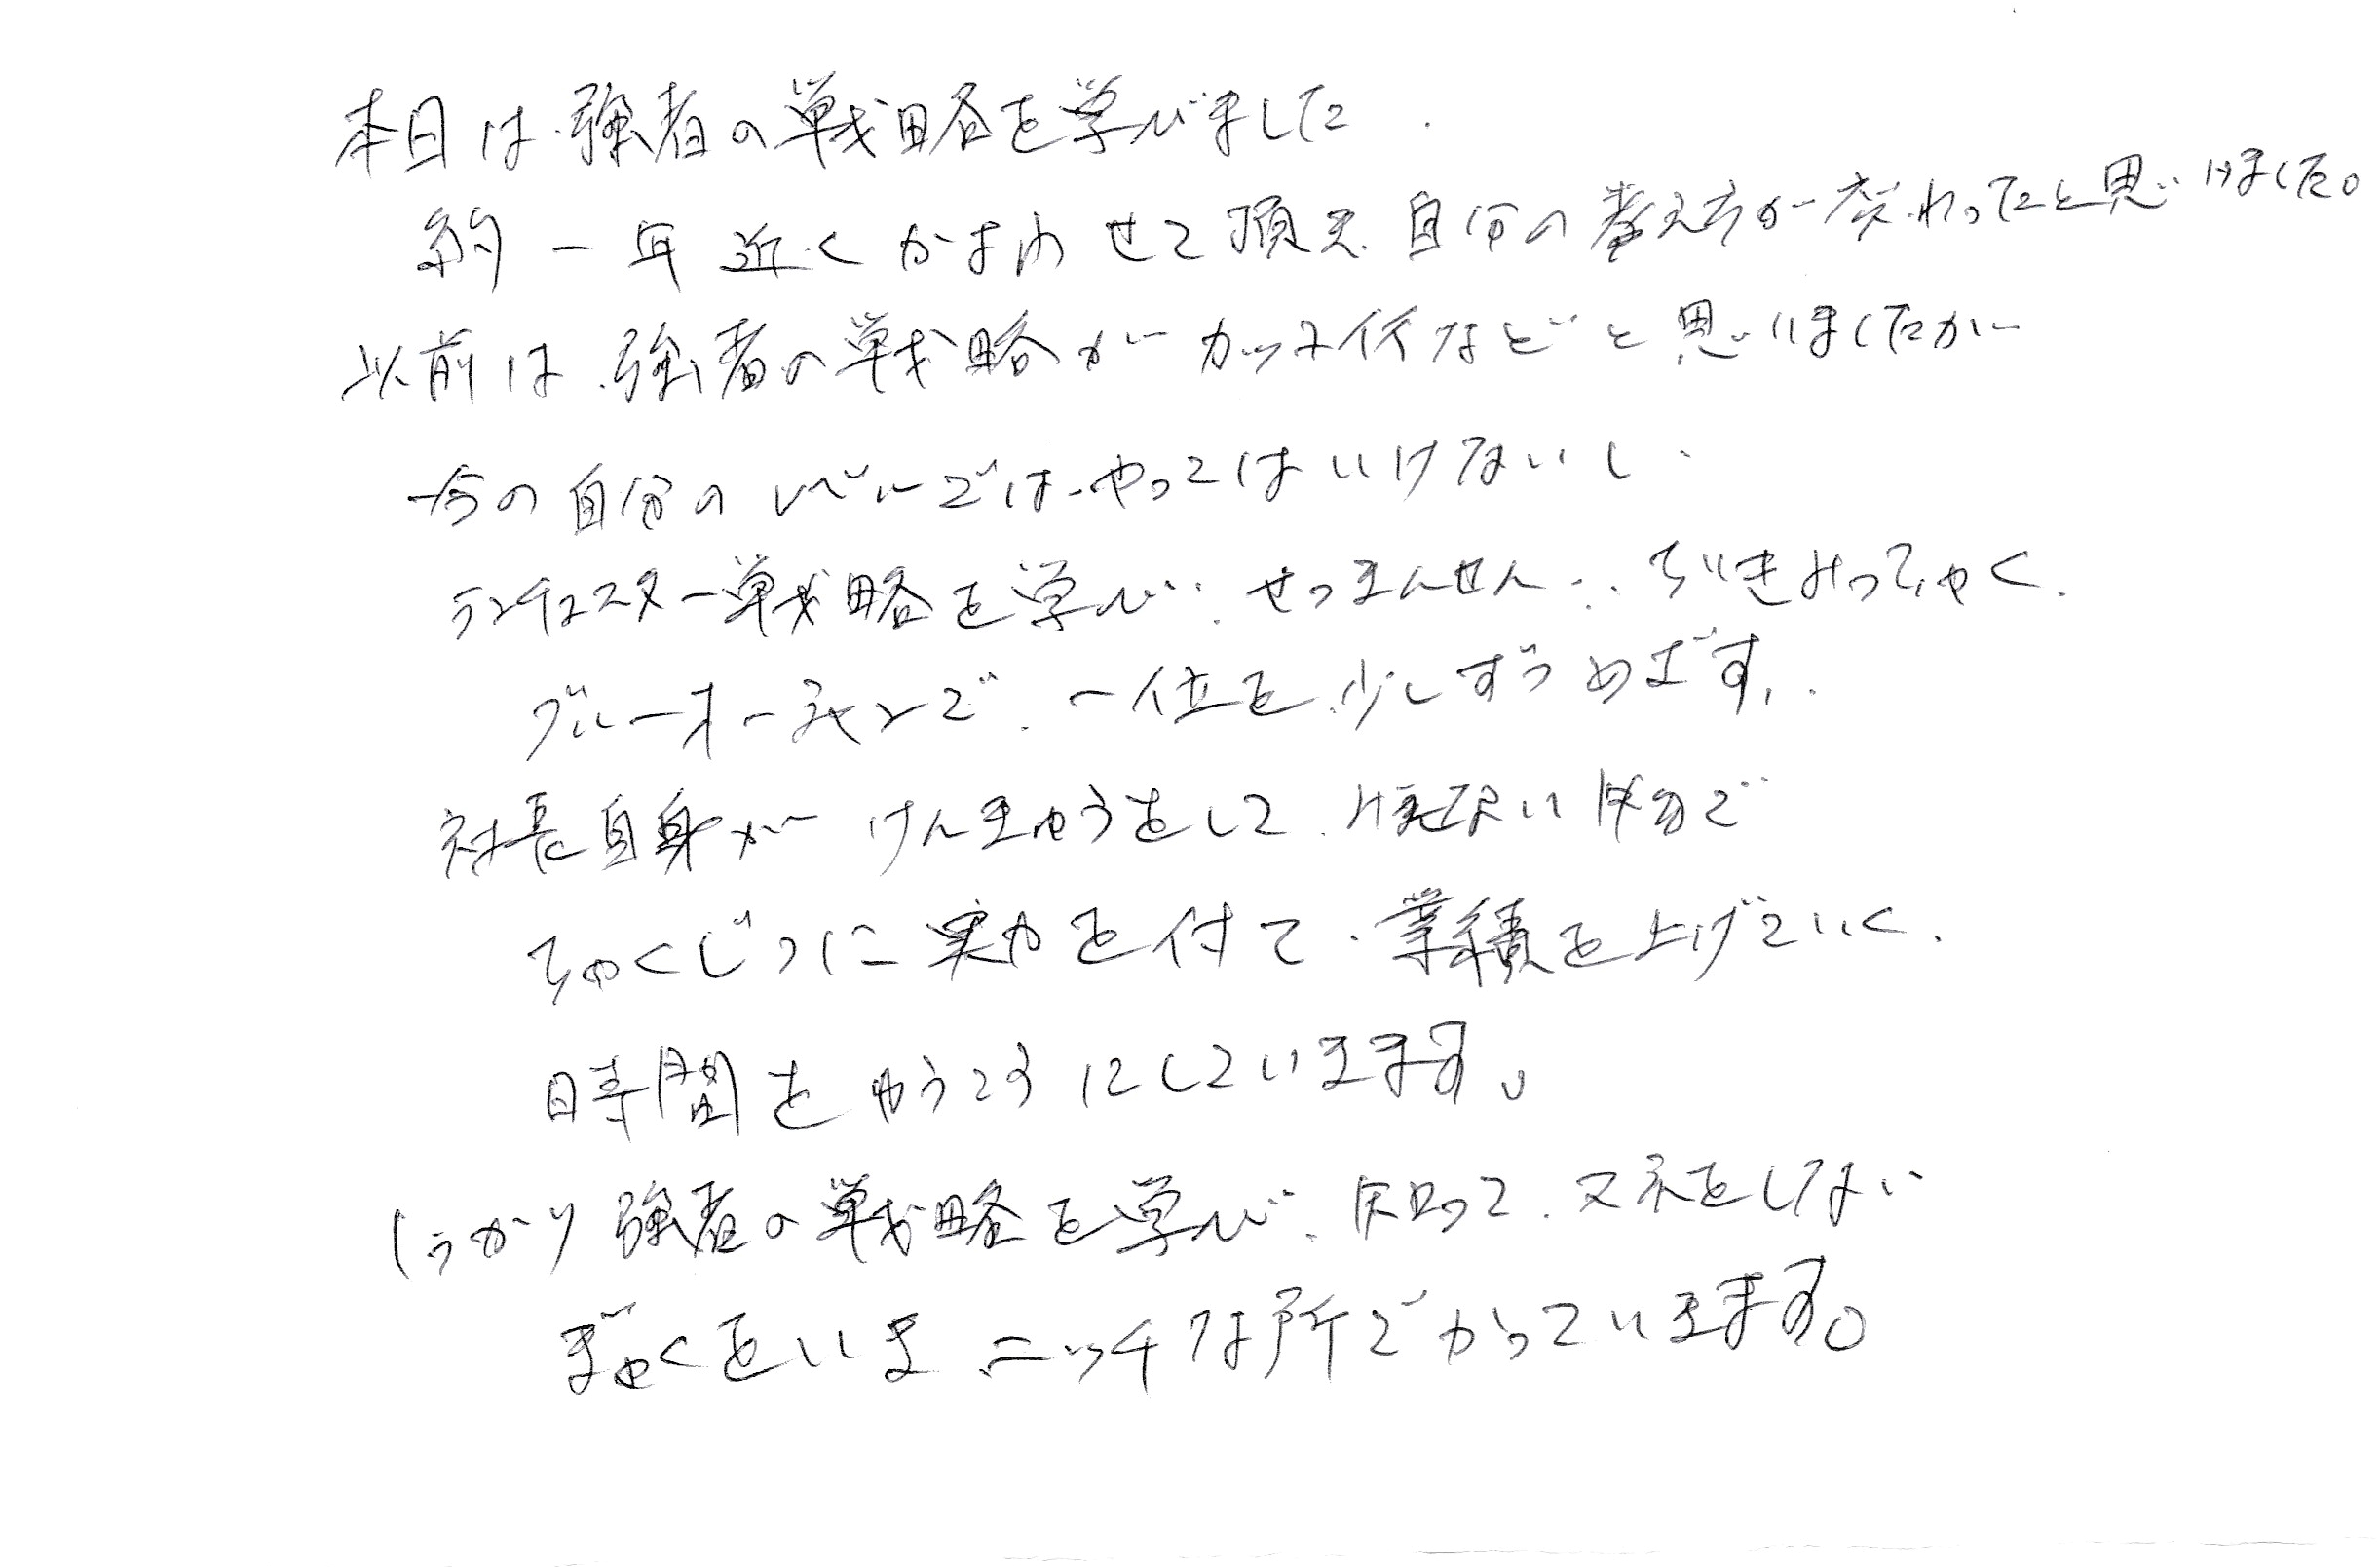 本日は強者の戦略を学びました.
約一年近くかよわせて頂き自分の考え方が変わったと思いました。
以前は、強者の戦略がカッコ何などと思いましたが
今の自分のレベルでは、やってはいけないし、
ランチェスター戦略を学び、せつまんせん、ちいきみっちゃく、
ブルーオーシャンで、一位を少しずつめざす、
社長自身がけんきゅうをして、
ちゃくじつに実力を付て、業績を上げていく、
時間をゆうこうにしていきます。
しっかり強者の戦略を学び、知って、マネをしない
ぎゃくをいき、ニッチな所でかっていきます。